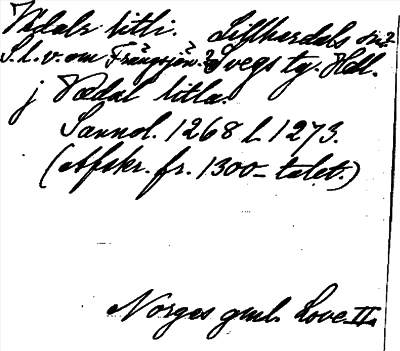 Vidalr litli. Lillherdals sn?
S.l.v. om Frängsjön.? Svegs tg. Hdl.
j Vædal litla.
Sannol. 1268 l. 1273.
(Afskr. fr. 1300-talet.)
Norges gml. Love II.